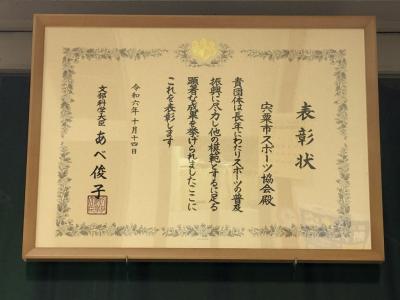 表彰状
宍粟市スポーツ協会殿
貴団体は長年にわたりスポーツの普及
振興に尽力し他の模範とするに足る
顕著な成果を挙げられましたここに
これを表彰します
令和六年十月十四日
文部科学大臣 あべ俊子